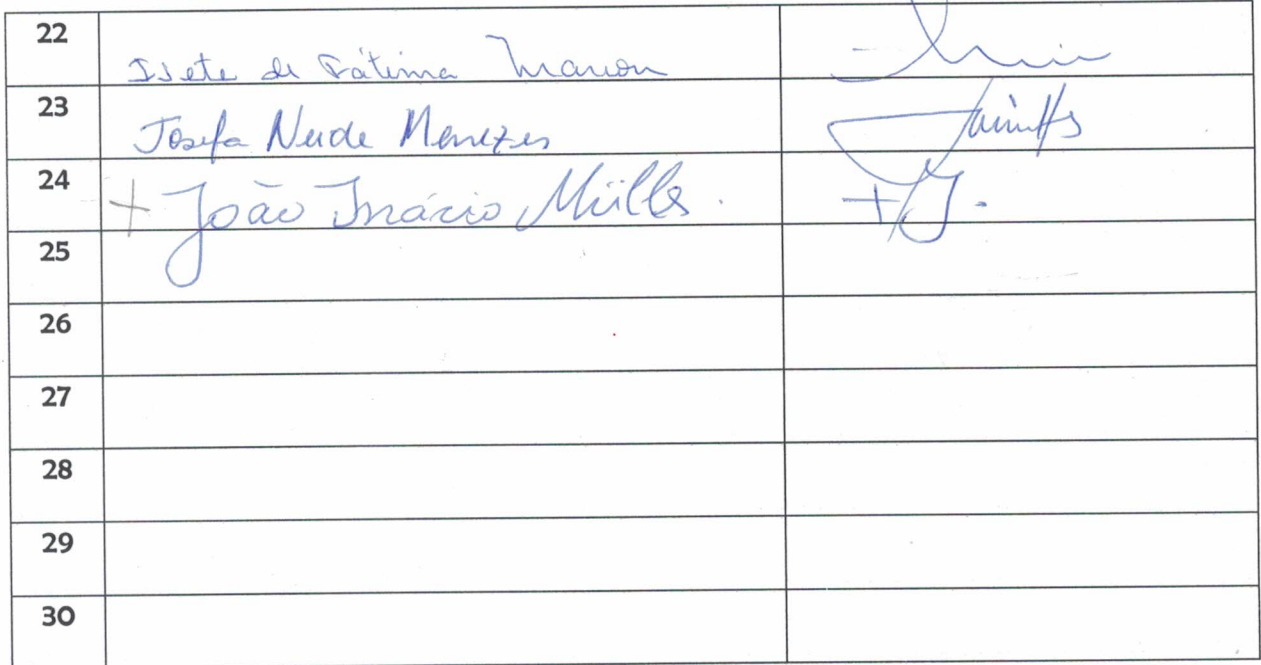 22 Isete de Fátima Marion
23 Josefa Neide Menezes
24 + João Inácio Müller. + J.
25
26
27
28
29
30